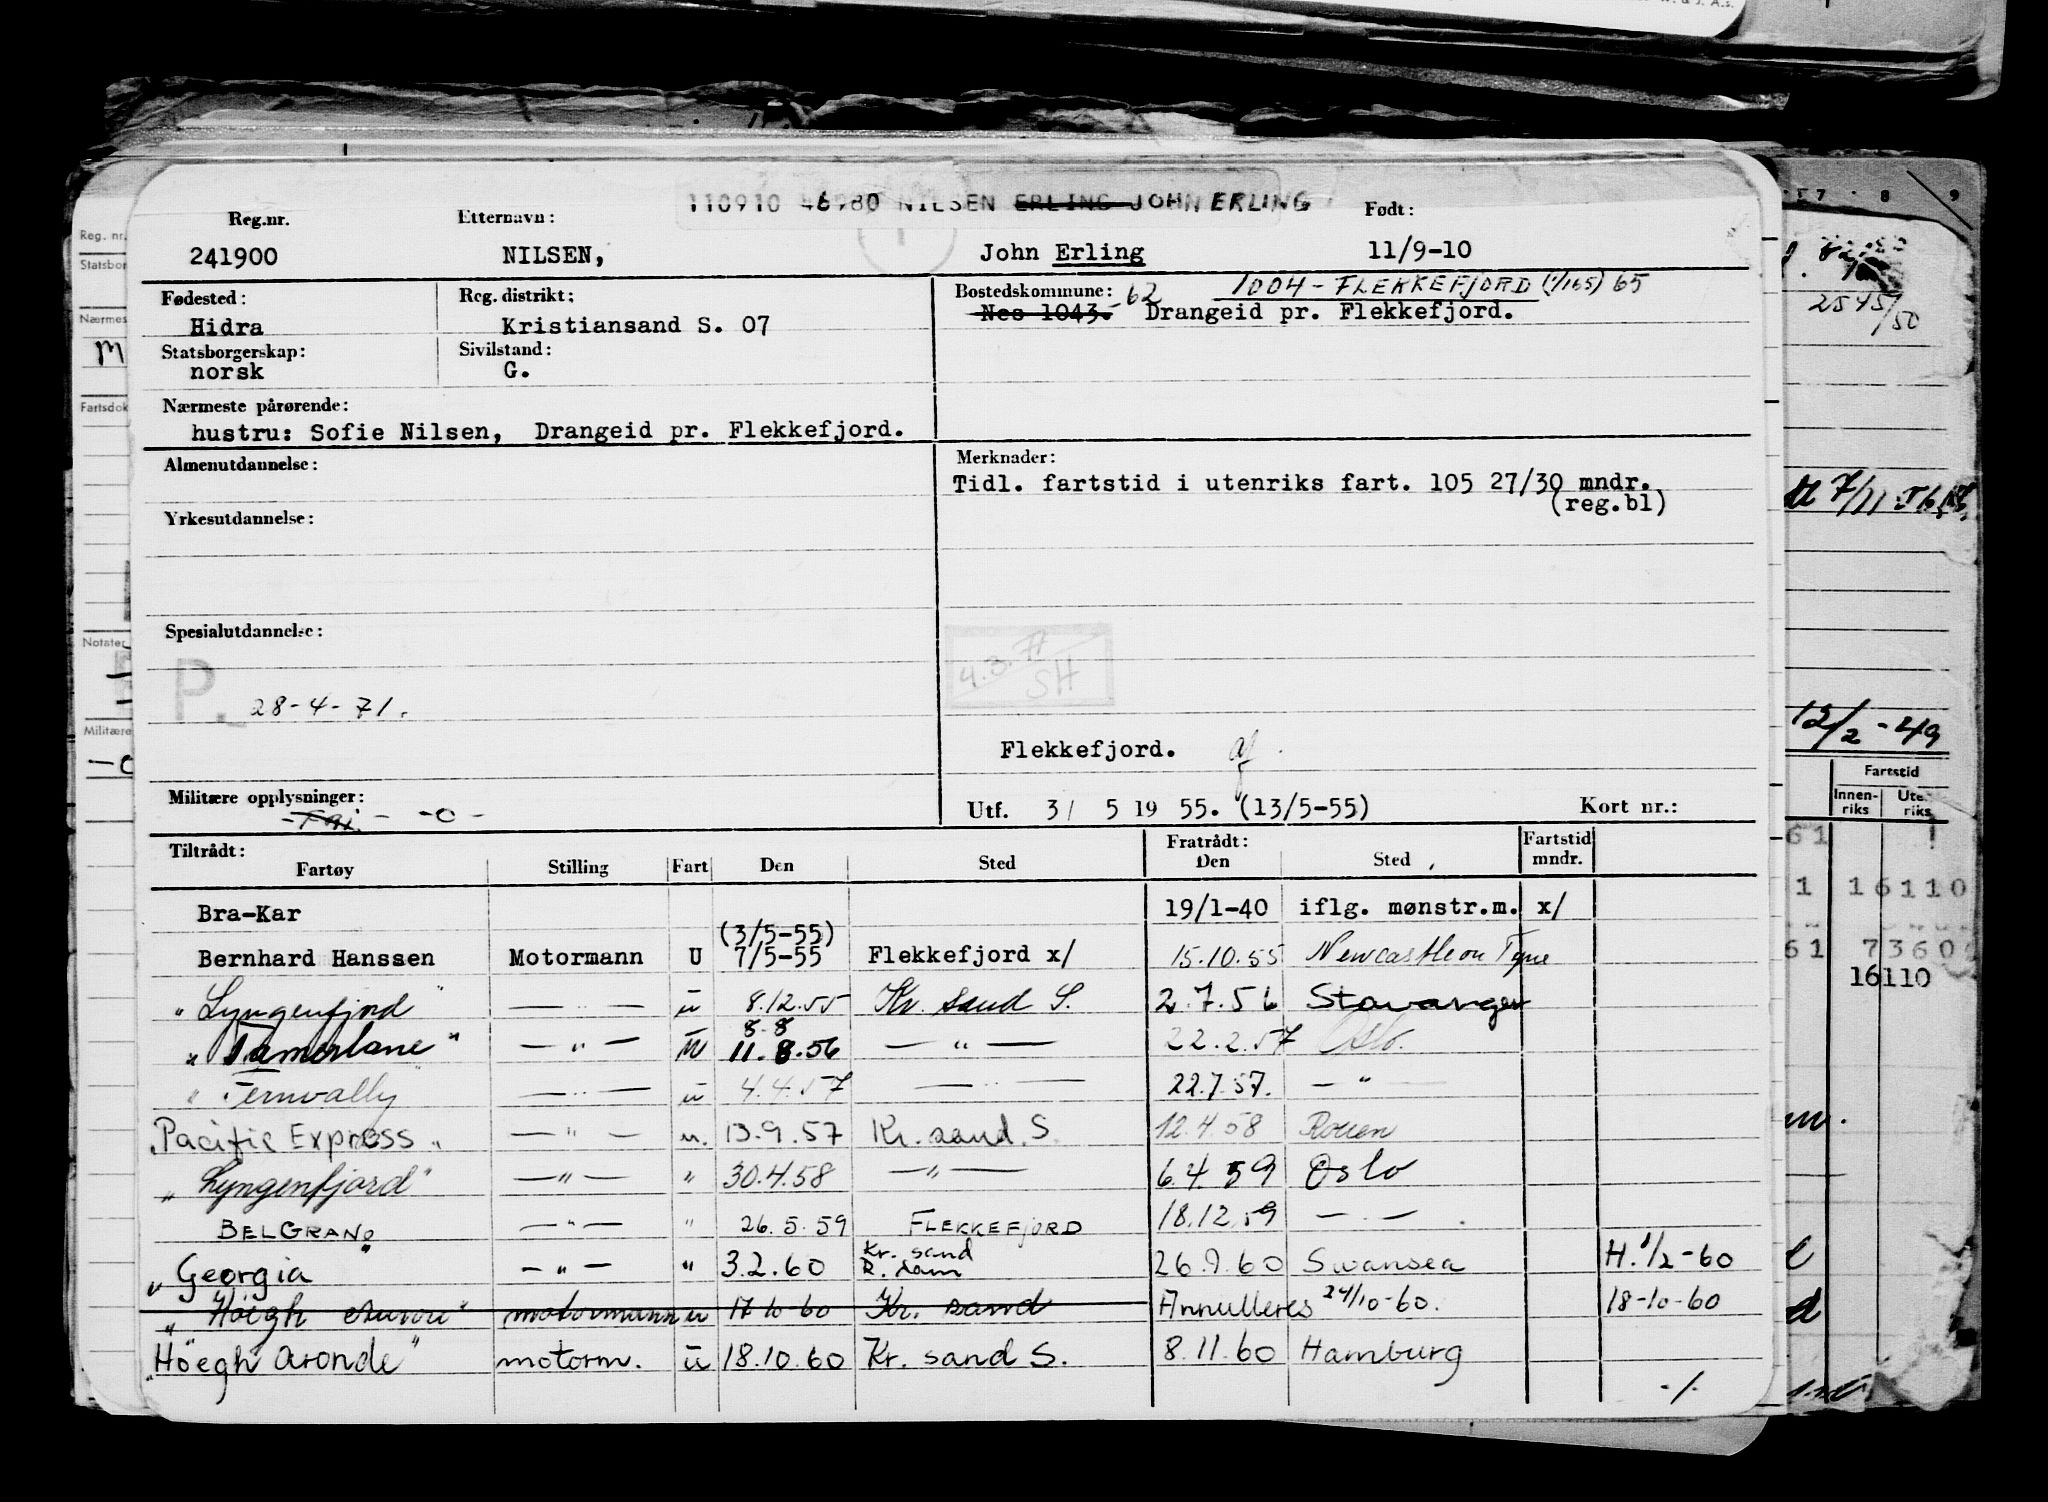 110910 46980 NILSEN ERLING JOHN ERLING
Reg.nr. Etternavn: Født:
241900 NILSEN, John Erling 11/9-10
Fødested: Reg. distrikt: Bostedskommune: -62 1004 - FLEKKEFJORD (1/1 65) 65
Hidra Kristiansand S. 07 Nes 1043. Drangeid pr. Flekkefjord.
Statsborgerskap: Sivilstand:
norsk G.
Nærmeste pårørende:
hustru: Sofie Nilsen, Drangeid pr. Flekkefjord.
Almenutdannelse: Merknader:
Tidl. fartstid i utenriks fart. 105 27/30 mndr.
(reg.bl)
Yrkesutdannelse:
Spesialutdannelse:
4.3.71
SH
P.
28-4-71.
Flekkefjord.
Militære opplysninger: -o-
Utf. 3/ 5 19 55. (13/5-55) Kort nr.:
Tiltrådt: Fratrådt: Fartstid
Fartøy Stilling Fart Den Sted Den Sted mndr.
Bra-Kar 19/1-40 iflg. mønstr.m. x/
(3/5-55)
Bernhard Hanssen Motormann U 7/5-55 Flekkefjord x/ 15.10.55 Newcastle on Tyne
"Lyngenfjord" — " — u 8.12.55 Kr. sand S. 2.7.56 Stavanger
8.8
"Tamerlane" — " — u 11.8.56 — " — 22.2.57 Oslo.
"Fernvally" — " — u 4.4.57 — " — 22.7.57. — " —
"Pacific Express" — " — u. 13.9.57 Kr. sand. S. 12.4.58 Rouen
"Lyngenfjord" — " — " 30.4.58 — " — 6.4.59 Oslo
BELGRANO — " — " 26.5.59 FLEKKEFJORD 18.12.59 — " —
"Georgia" — " — " 3.2.60 Kr. sand 26.9.60 Swansea H. 1/2-60
"Höegh" motormann u 17-10-60 Kr. sand Annulleres 24/10-60. 18-10-60
"Höegh Aronde" motorm. u 18.10.60 Kr. sand S. 8.11.60 Hamburg
-/-
Reg. nr.
Statsbor
Nærmes
M
Fartsdok
Notater
Militære
7 8 9
2545/50
12/2-49
Fartstid
Innen-riks Ute riks
61
1 16110
61 7360
16110